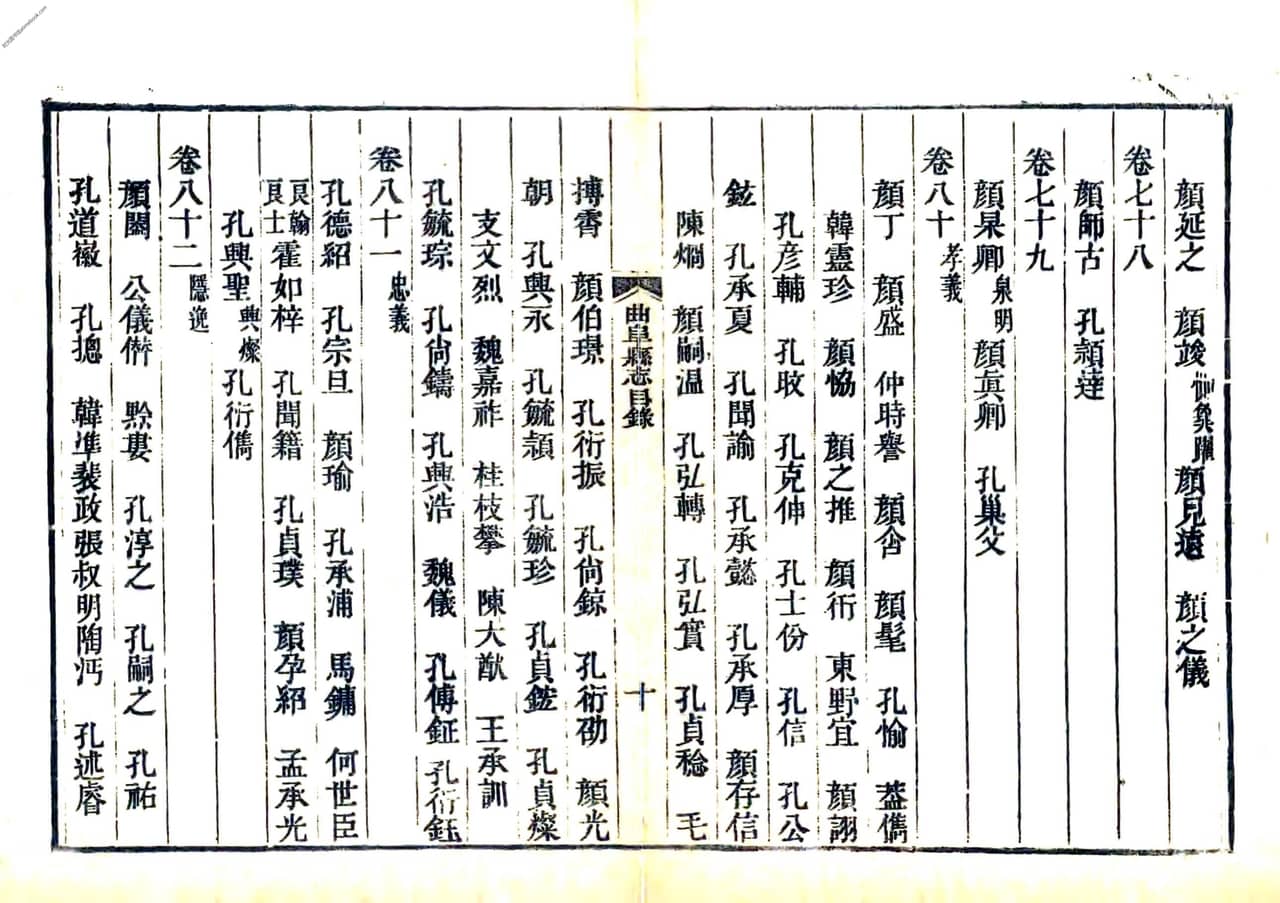 顏延之 顏竣 㚟 顏見遠 顏之儀
卷七十八
顏師古 孔潁達
卷七十九
顏杲卿 泉明 顏眞卿 孔巢父
卷八十 孝義
顏丁 顏盛 仲時譽 顏含 顏髦 孔愉 葢儁
韓靈珍 顏恊 顏之推 顏術 東野宜 顏詡
孔彥輔 孔㪺 孔克伸 孔士份 孔信 孔公
鉉 孔承夏 孔聞諭 孔承懿 孔承厚 顏存信
陳燗 顏嗣温 孔弘轉 孔弘實 孔貞稔 毛
曲阜縣志目錄 十
搏霄 顏伯璟 孔衍振 孔尙鍄 孔衍劭 顏光
朝 孔興永 孔毓潁 孔毓珍 孔貞鋐 孔貞燦
支文烈 魏嘉祚 桂枝攀 陳大猷 王承訓
孔毓琮 孔尙鑄 孔興浩 魏儀 孔傅鉦 孔衍鈺
卷八十一 忠義
孔德紹 孔宗旦 顏瑜 孔承浦 馬鏞 何世臣
良翰 良士 霍如梓 孔聞籍 孔貞璞 顏孕紹 孟承光
孔興聖 興燦 孔衍儁
卷八十二 隱逸
顏闔 公儀僣 黔婁 孔淳之 孔嗣之 孔祐
孔道徽 孔摠 韓凖裴政張叔明陶沔 孔述睿